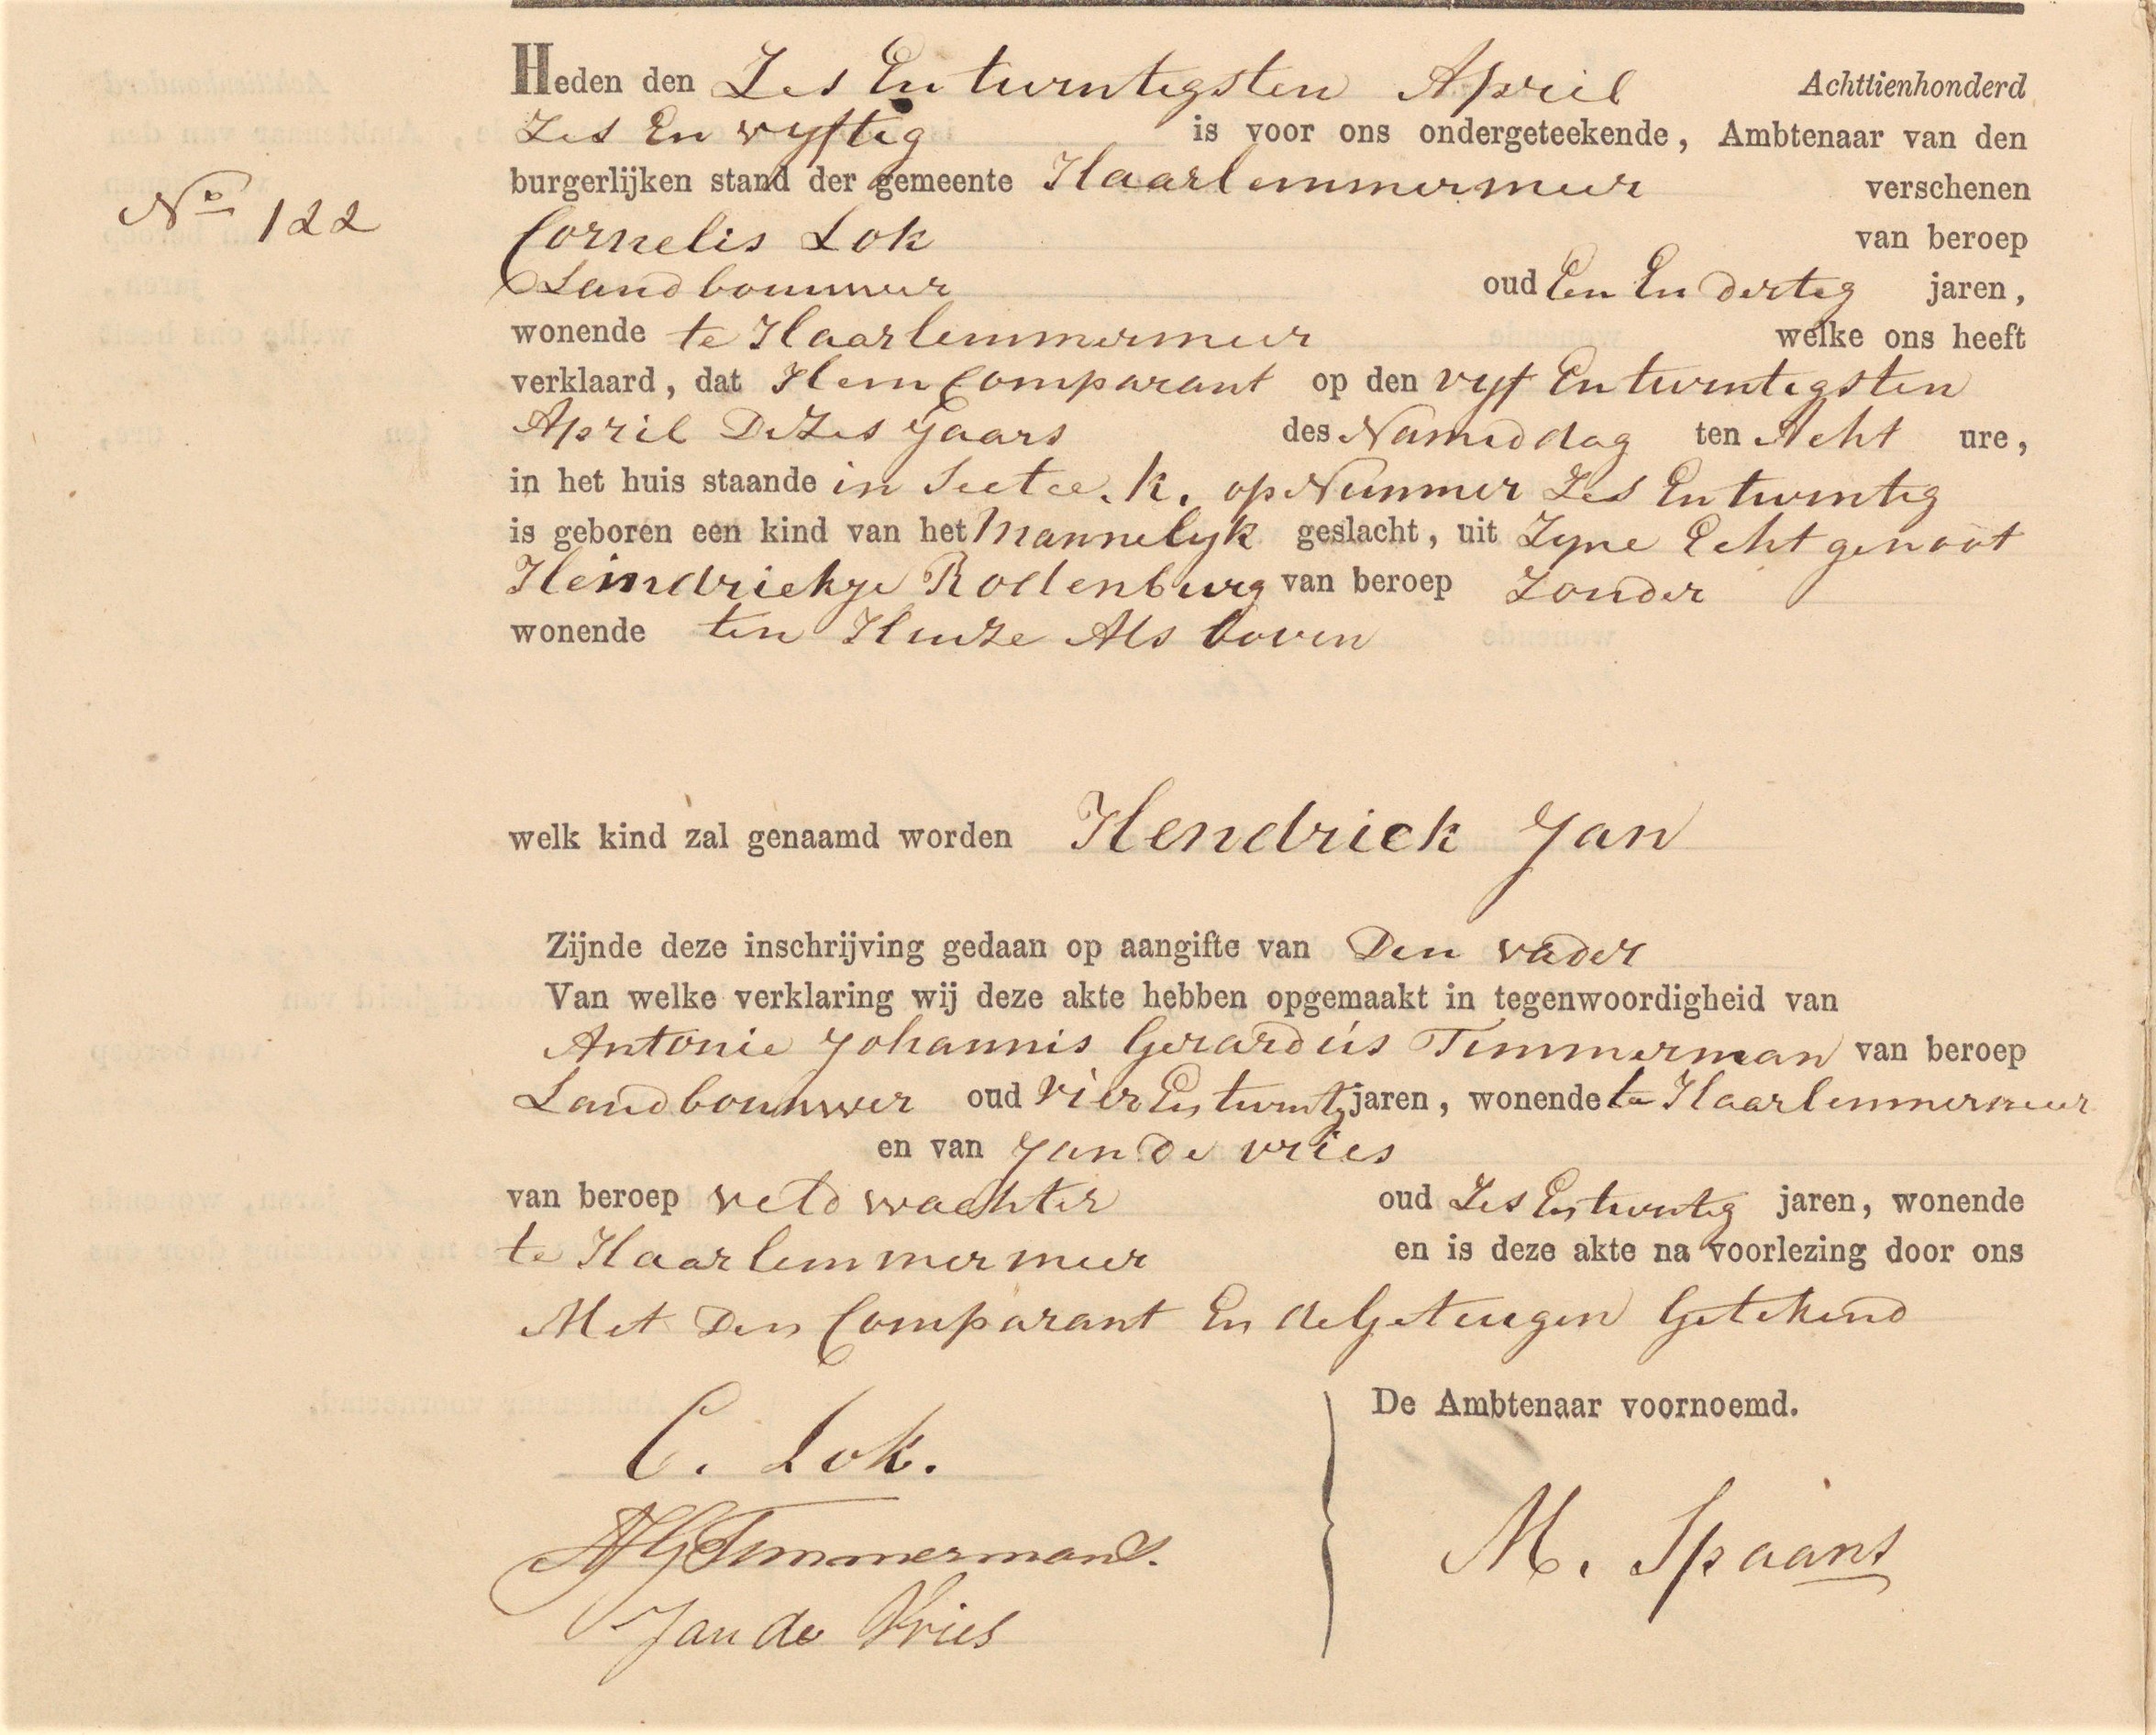 Heden den Zes En twentigsten April Achttienhonderd
Zes En vyftig is voor ons ondergeteekende, Ambtenaar van den
burgerlijken stand der gemeente Haarlemmermeer verschenen
No 122
Cornelis Lok van beroep
Landbouwer oud Een En dertig jaren,
wonende te Haarlemmermeer welke ons heeft
verklaard, dat Hem Comparant op den vyf En twentigsten
April Dezes Jaars des Namiddag ten Acht ure,
in het huis staande in Sectie. K. op Nummer Zes En twintig
is geboren een kind van het Mannelyk geslacht, uit Zyne Echtgenoot
Heindriekje Rodenburg van beroep Zonder
wonende ten Huize Als boven
welk kind zal genaamd worden Hendriek Jan
Zijnde deze inschrijving gedaan op aangifte van Den vader
Van welke verklaring wij deze akte hebben opgemaakt in tegenwoordigheid van
Antonie Johannis Gerardus Timmerman van beroep
Landbouwer oud Vier En twintig jaren, wonende te Haarlemmermeer
en van Jan De vries
van beroep veldwachter oud Zes En twintig jaren, wonende
te Haarlemmermeer en is deze akte na voorlezing door ons
Met Den Comparant En de Getuigen Getekend
De Ambtenaar voornoemd.
C. Lok.
AJG Timmermans.
M. Spaans
Jan de Vries